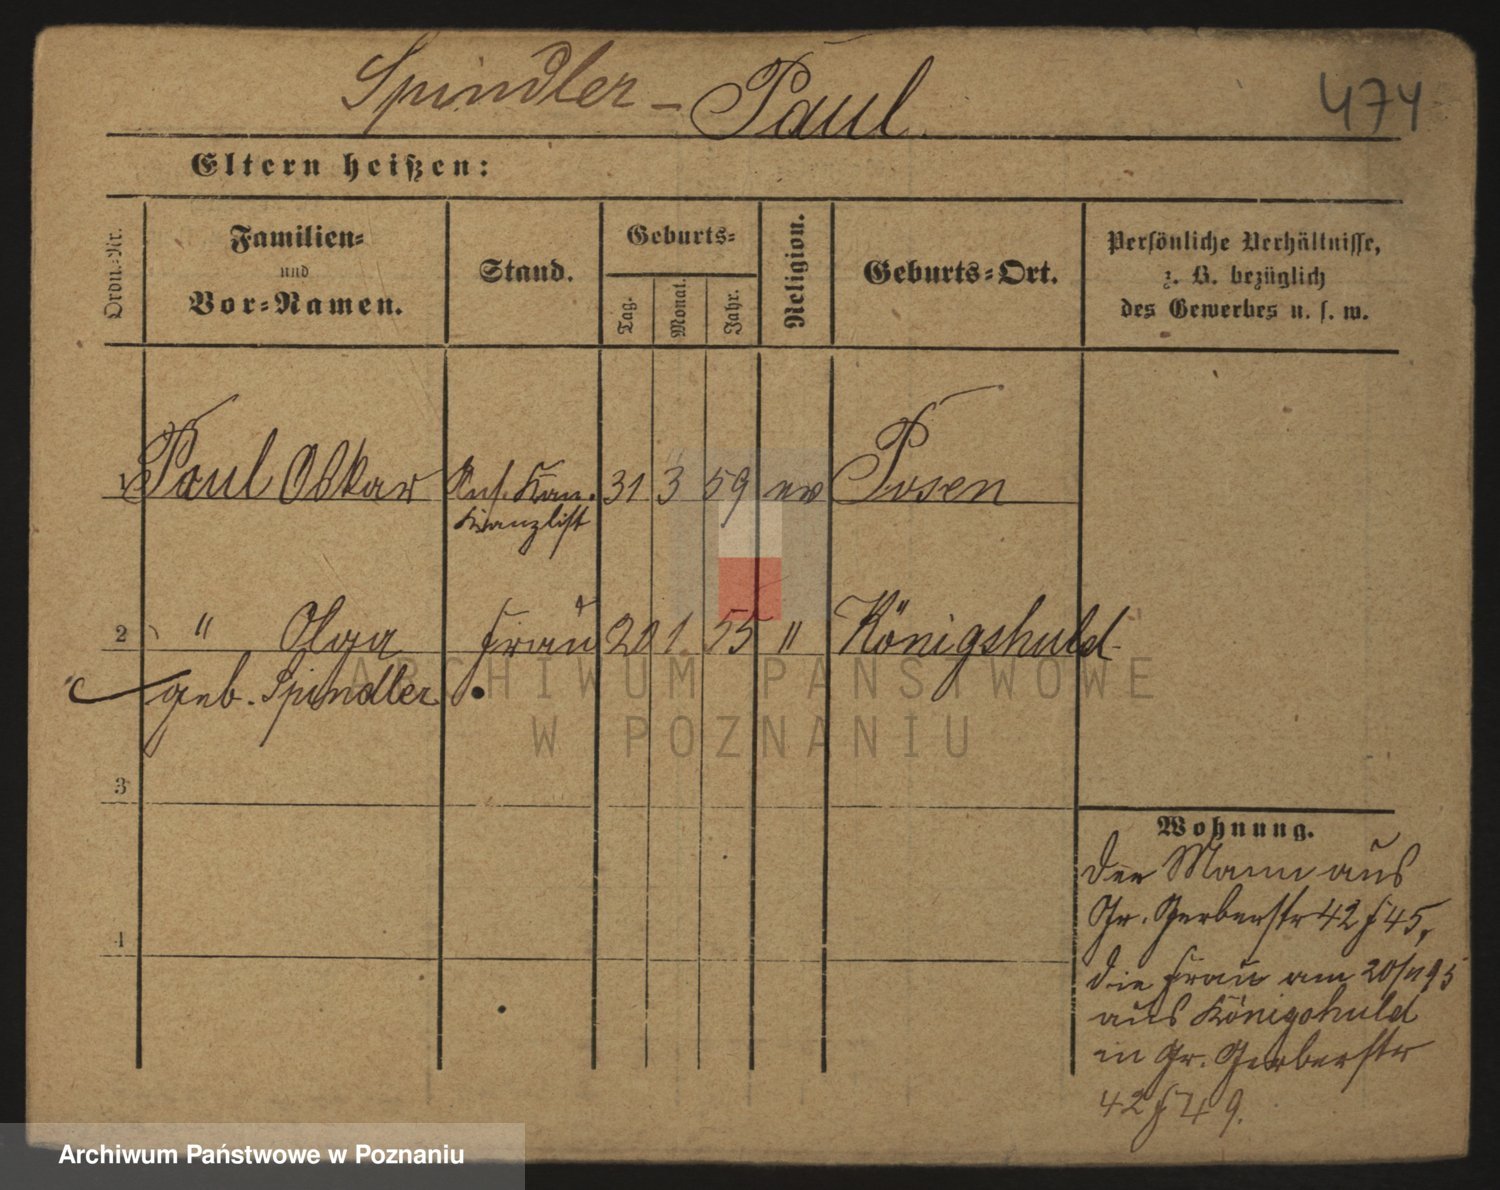 Spindler - Paul.
474
Eltern heißen:
Ordn.-Nr.
Familien-
und
Vor-Namen.
Stand.
Geburts-
Tag.
Monat.
Jahr.
Religion.
Geburts-Ort.
Persönliche Verhältnisse,
z. B. bezüglich
des Gewerbes u. s. w.
1 Paul Oskar 31 3 59 ev Posen
Kanzlist
2 " Olga Frau 20 1. 55 " Königshuld
geb. Spindler
3
4
Wohnung.
Der Mann aus
Gr. Gerberstr 42 f 45,
die Frau am 20/11 95
aus Königshuld
in Gr. Gerberstr
42 f 49.
ARCHIWUM PAŃSTWOWE
W POZNANIU
Archiwum Państwowe w Poznaniu